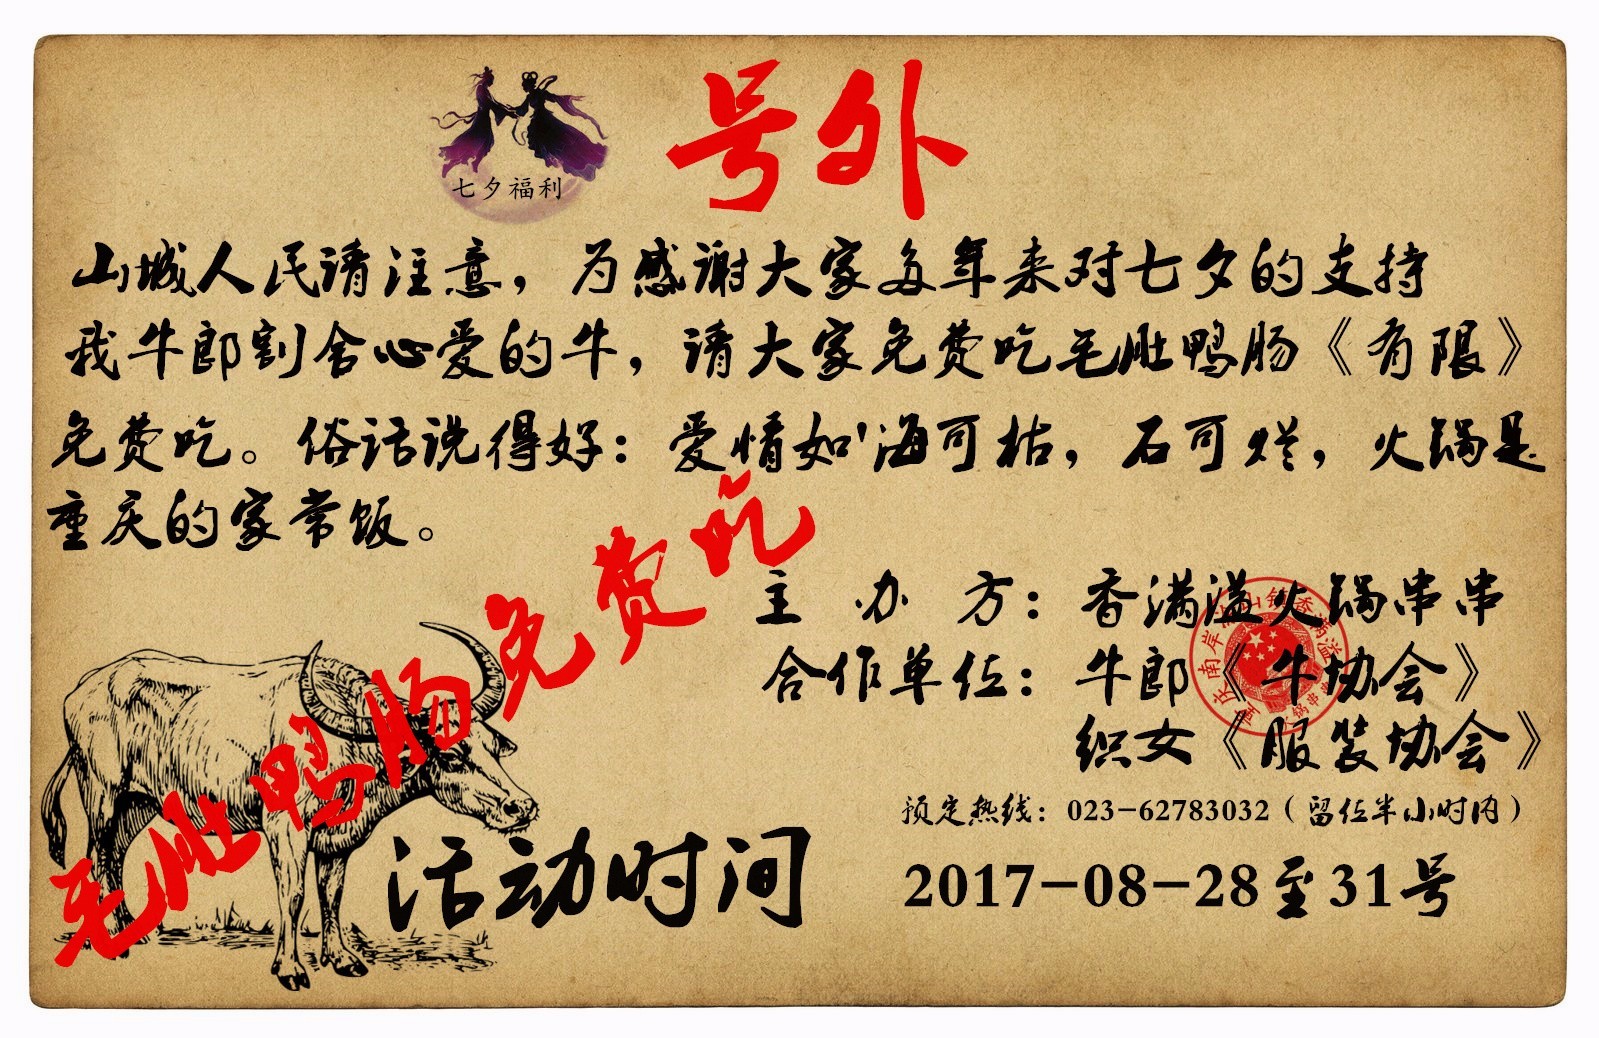 号外
七夕福利
山城人民请注意，为感谢大家多年来对七夕的支持
我牛郎割舍心爱的牛，请大家免费吃毛肚鸭肠《有限》
免费吃。俗话说得好：爱情如'海可枯，石可烂，火锅是
重庆的家常饭。
毛肚鸭肠免费吃
主办方：香满溢火锅串串
合作单位：牛郎《牛协会》
织女《服装协会》
预定热线：023-62783032（留位半小时内）
活动时间
2017-08-28至31号